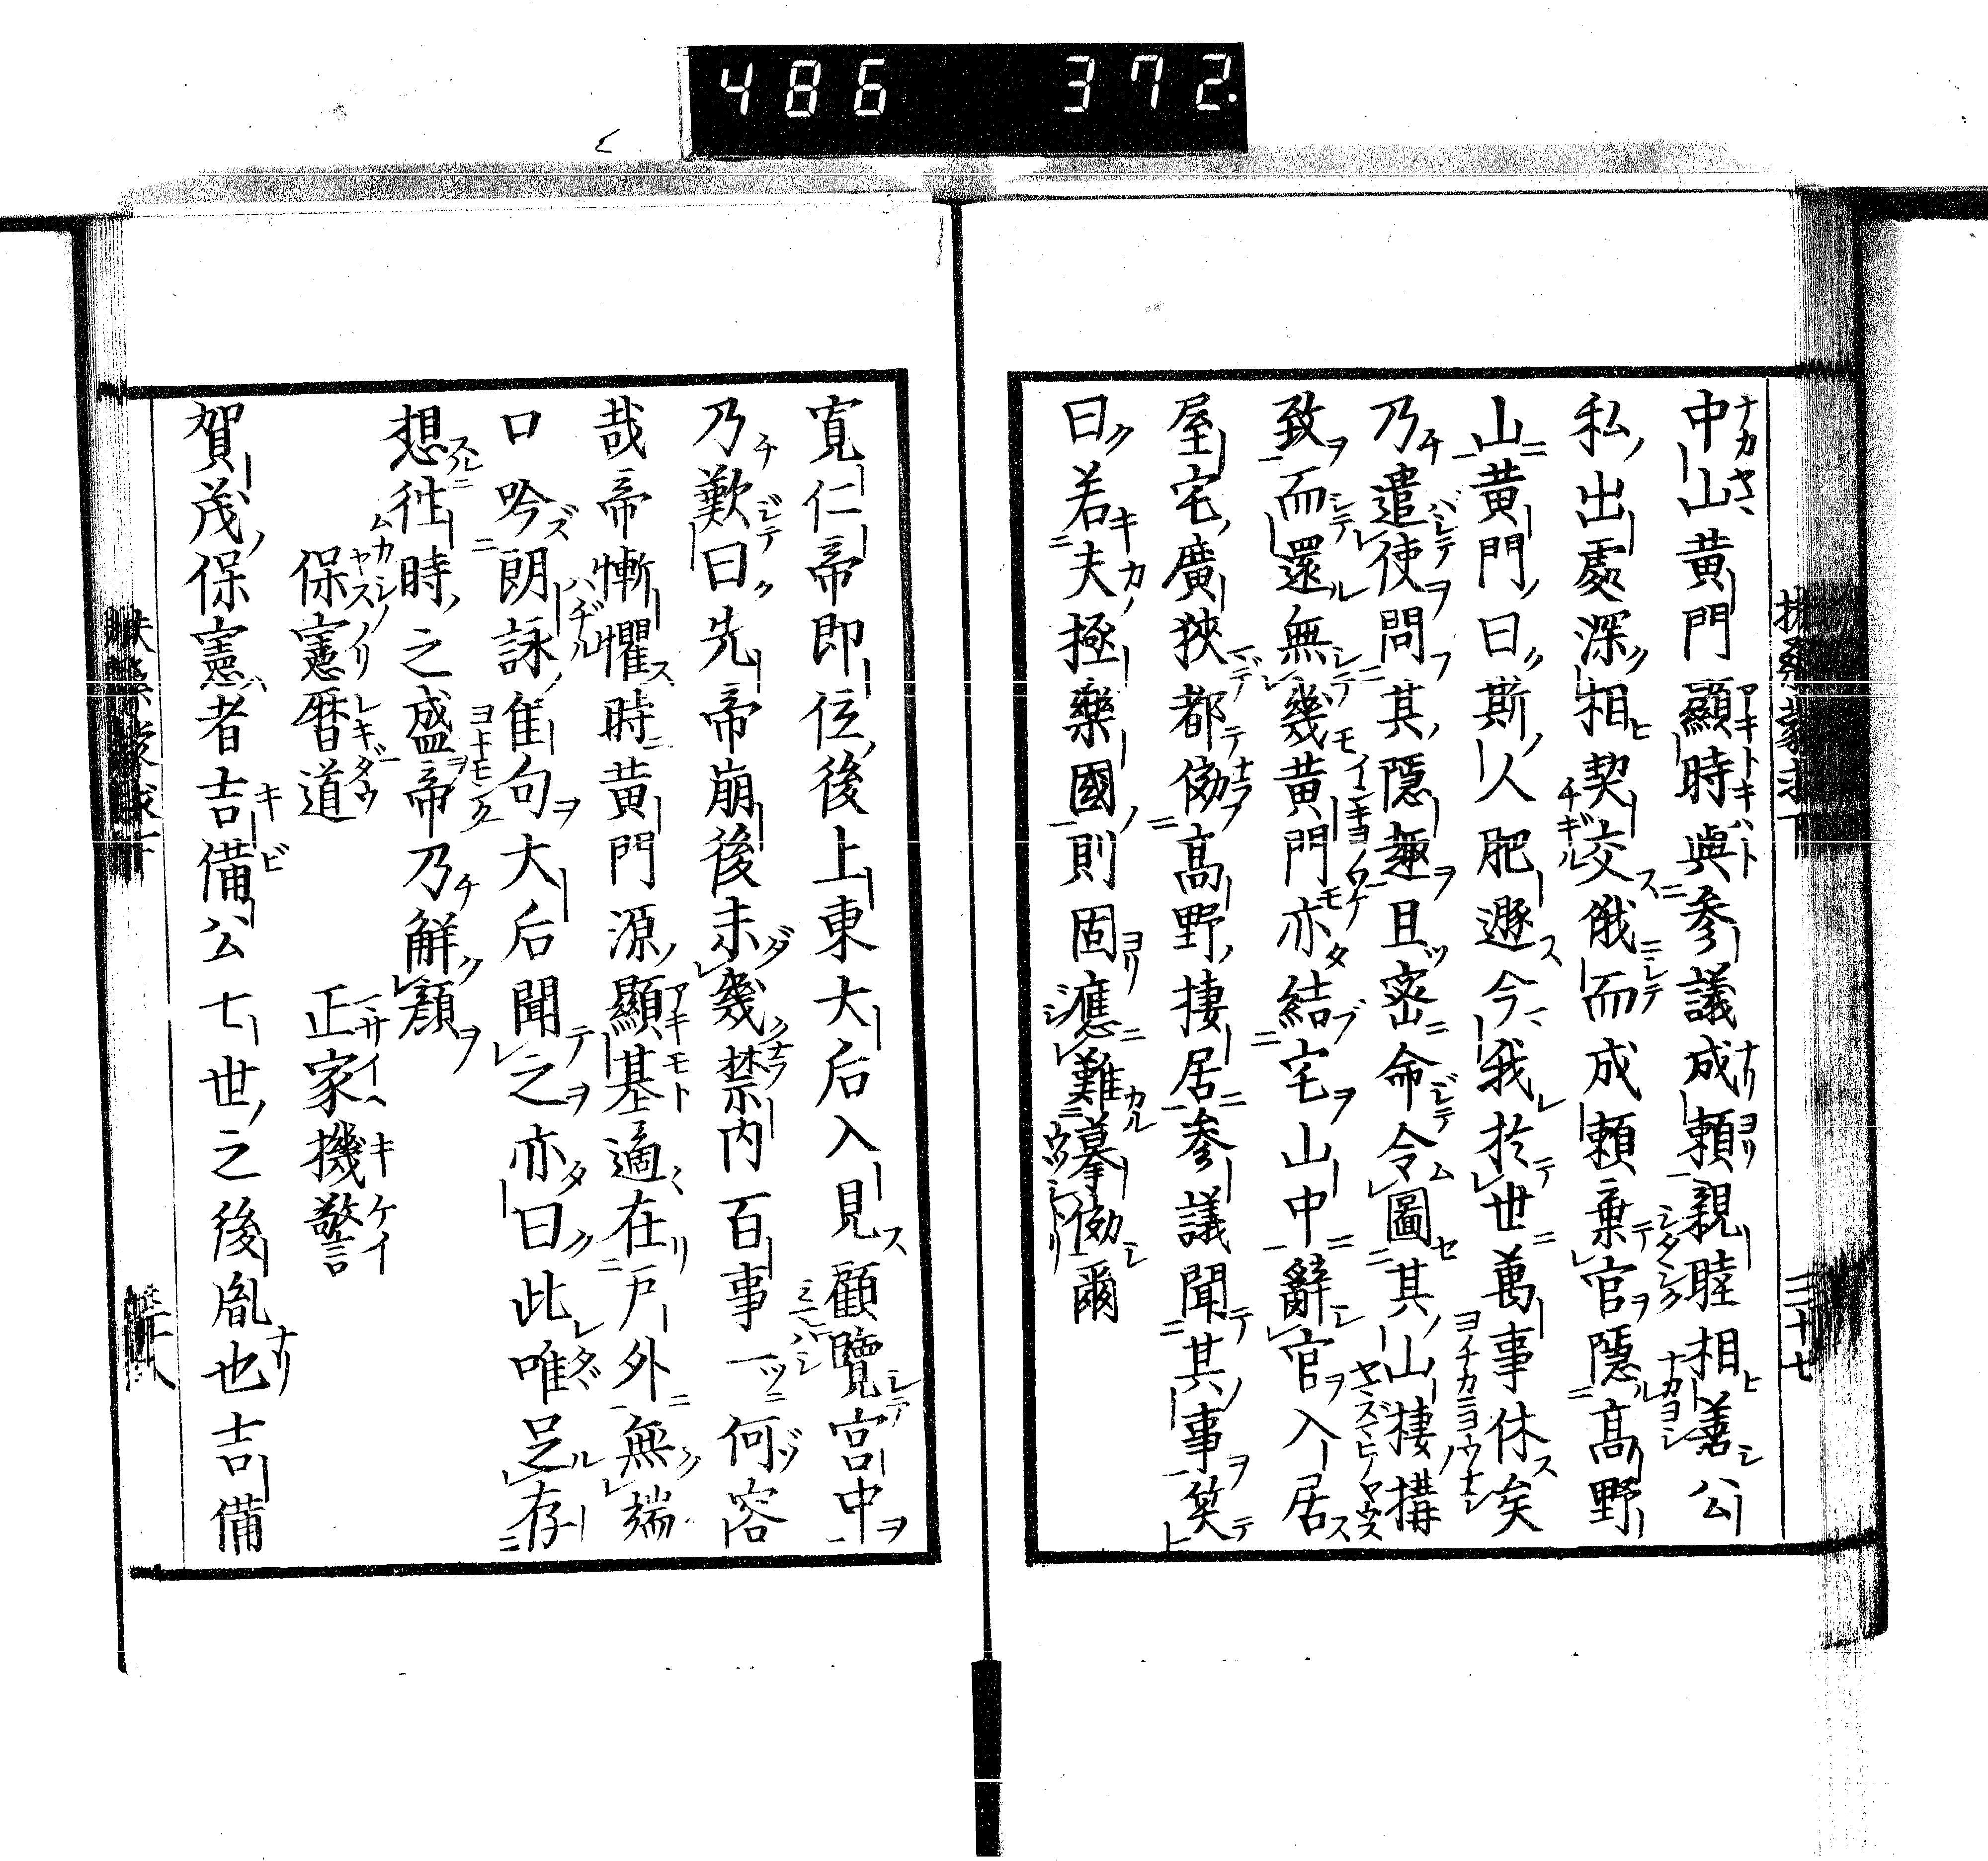 486 372.
三十七
中山黄門顯時與參議成頼親睦相善公
私出處深相契交俄而成頼棄官隱高野
山黄門曰斯人肥遯今我於世萬事休矣
乃遣使問其隱趣且密命令圖其山棲搆
致而還無幾黄門亦結宅山中辭官入居
屋宅廣狹都傚高野棲居參議聞其事笑
曰若夫極樂國則固應難摹傚爾
寛仁帝即位後上東大后入見顧覽宮中
乃歎曰先帝崩後未幾禁内百事一何容
哉帝慚懼時黄門源顯基適在戸外無端
口吟朗詠隹句大后聞之亦曰此唯足存
想徃時之盛帝乃解顔
保憲暦道 正家機警
賀茂保憲者吉備公七世之後胤也吉備